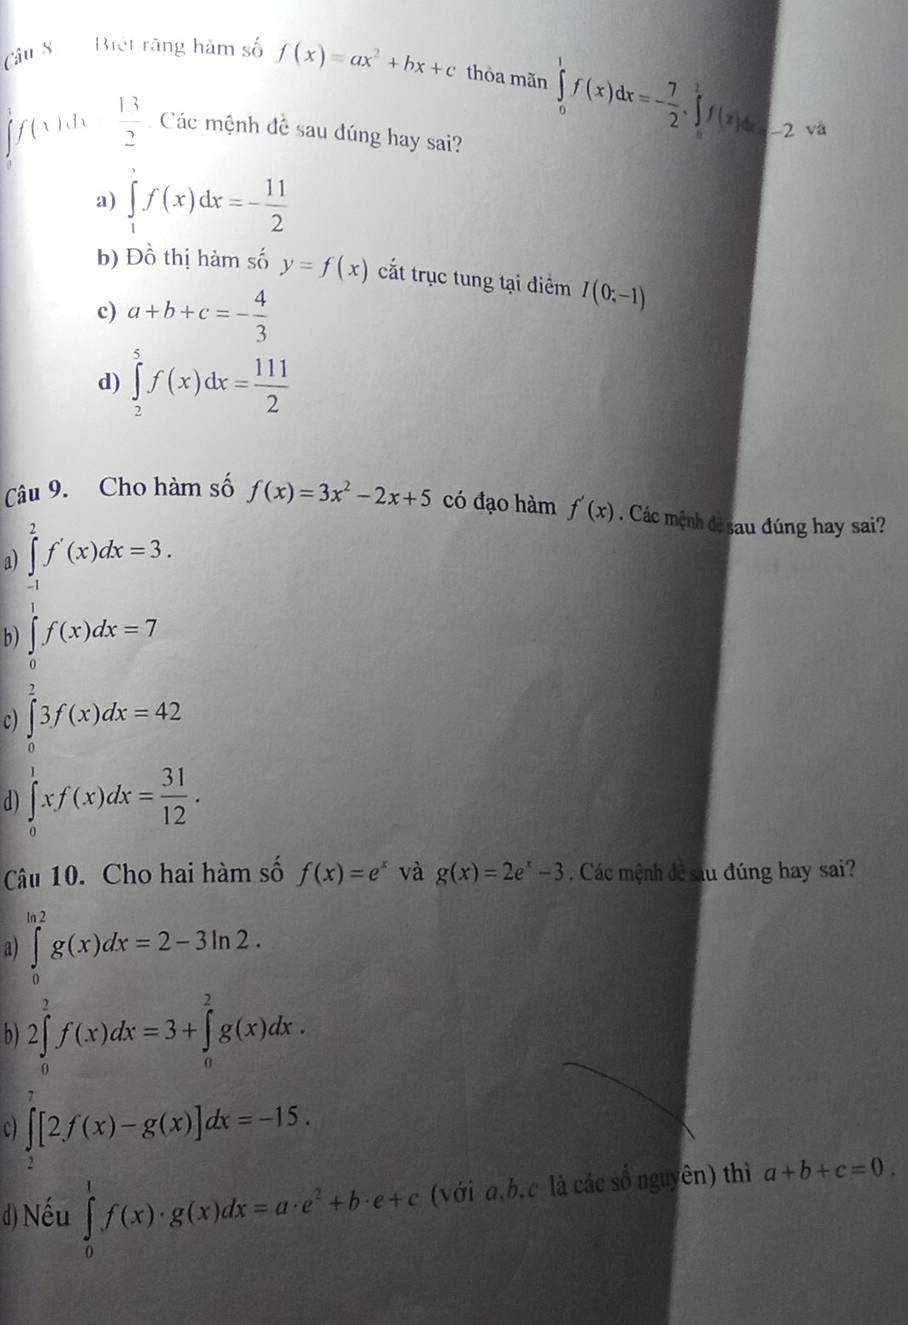 Câu 8. Biết rằng hàm số f(x) = ax² + bx + c thỏa mãn ∫₀¹ f(x)dx = -7/2, ∫₀² f(x)dx = -2 và
∫₀³ f(x)dx 13/2. Các mệnh đề sau đúng hay sai?
a) ∫₁ f(x)dx = -11/2
b) Đồ thị hàm số y = f(x) cắt trục tung tại điểm I(0;-1)
c) a+b+c = -4/3
d) ∫₂⁵ f(x)dx = 111/2
Câu 9. Cho hàm số f(x) = 3x² - 2x + 5 có đạo hàm f'(x). Các mệnh đề sau đúng hay sai?
a) ∫₋₁² f'(x)dx = 3.
b) ∫₀¹ f(x)dx = 7
c) ∫₀² 3f(x)dx = 42
d) ∫₀¹ xf(x)dx = 31/12.
Câu 10. Cho hai hàm số f(x) = eˣ và g(x) = 2eˣ - 3. Các mệnh đề sau đúng hay sai?
a) ∫₀^(ln 2) g(x)dx = 2 - 3 ln 2.
b) 2∫₀² f(x)dx = 3 + ∫₀² g(x)dx.
c) ∫₂⁷ [2f(x) - g(x)]dx = -15.
d) Nếu ∫₀¹ f(x)·g(x)dx = a·e² + b·e + c (với a,b,c là các số nguyên) thì a+b+c = 0.